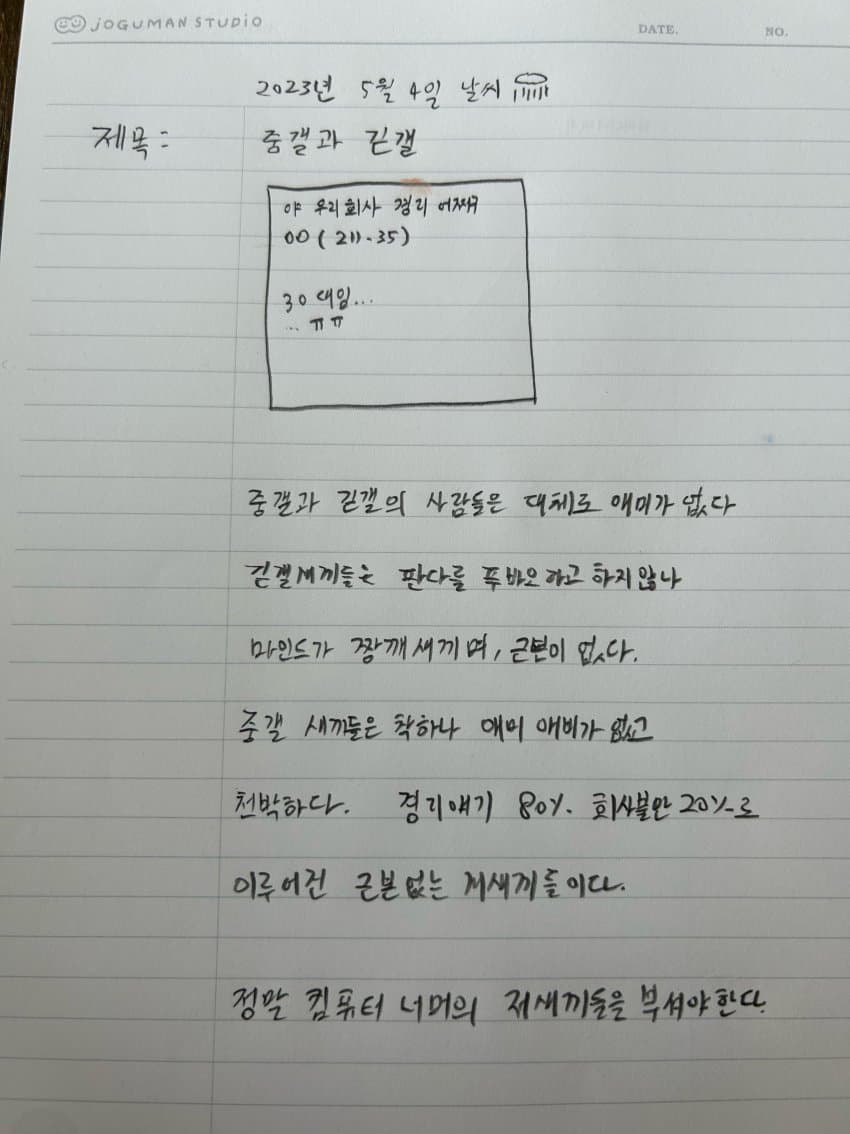 JOGUMAN STUDIO
DATE. NO.
2023년 5월 4일 날씨
제목: 중갤과 긷갤
야 우리회사 경리 어쩌구
00 (211.35)
30 대임...
... ㅠㅠ
중갤과 긷갤의 사람들은 대체로 애미가 없다
긷갤새끼들은 판다를 푸바오라고 하지않나
마인드가 짱깨새끼며, 근본이 없다.
중갤 새끼들은 착하나 애미 애비가 없고
천박하다. 경리얘기 80%. 회사불만 20%로
이루어진 근본없는 새끼들이다.
정말 컴퓨터 너머의 새끼들을 부셔야한다.